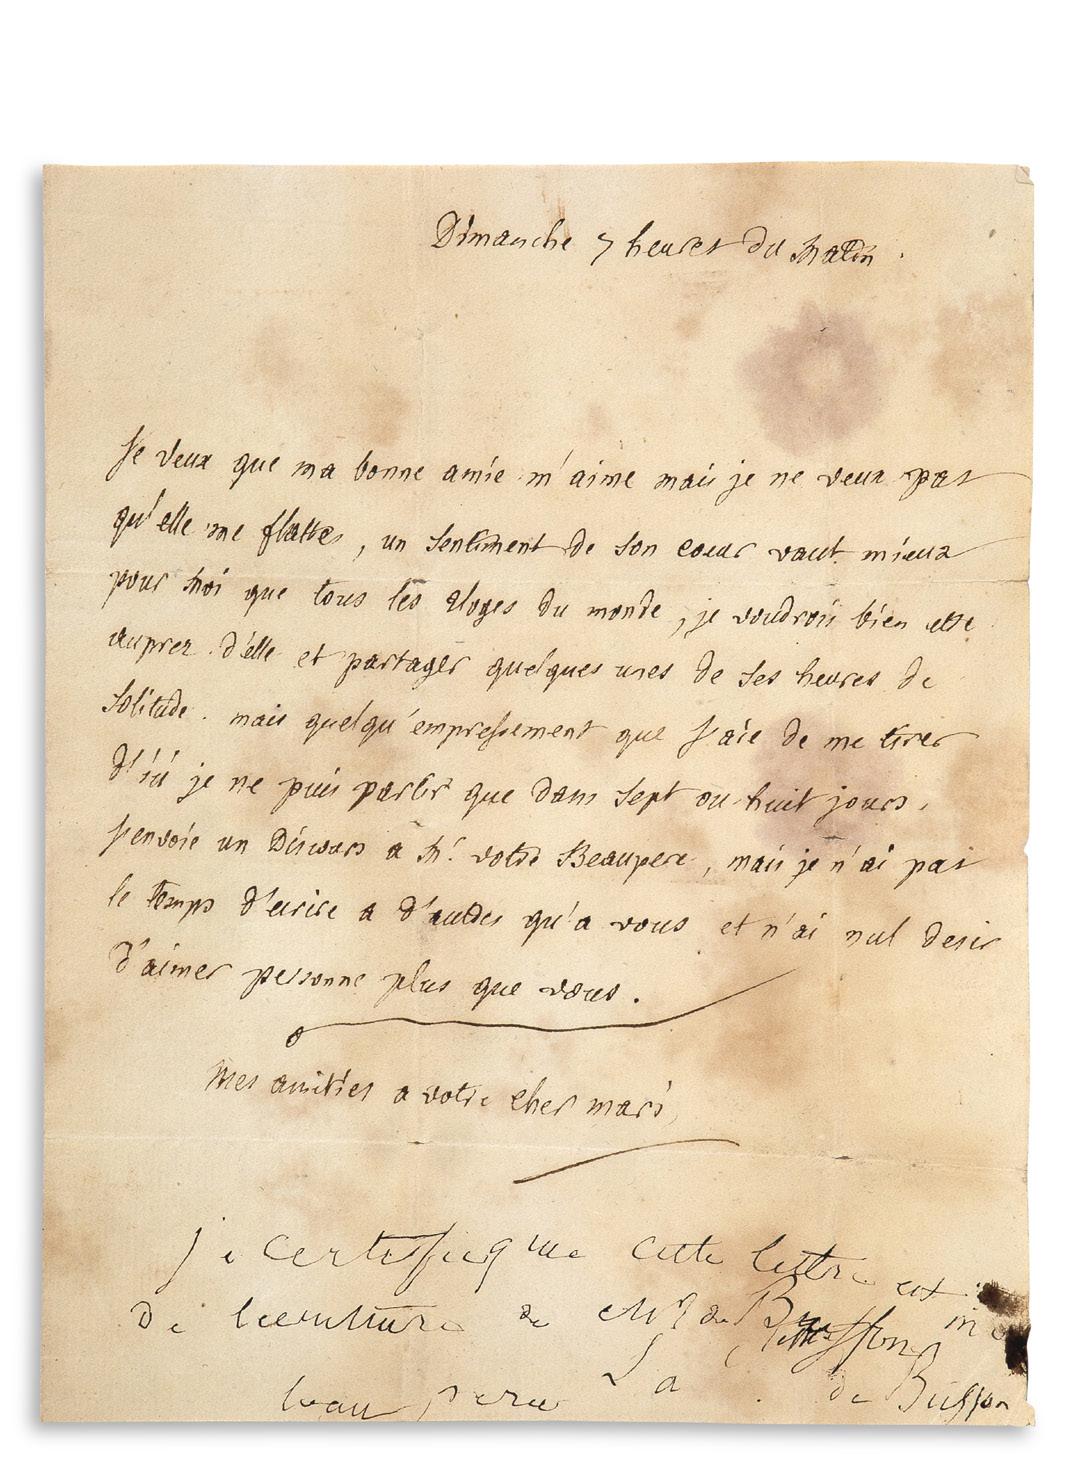 Dimanche 7 heures du matin.
Je veux que ma bonne amie m'aime mais je ne veux pas
qu'elle me flatte, un sentiment de son coeur vaut mieux
pour moi que tous les eloges du monde, je voudrois bien etre
auprez d'elle et partager quelques unes de ses heures de
solitude. mais quelqu'empressement que j'aie de me tirer
d'ici je ne puis partir que dans sept ou huit jours,
j'envoie un Discours a Mr. votre Beaupere, mais je n'ai pas
le temps d'ecrire a d'autres qu'a vous et n'ai nul desir
d'aimer personne plus que vous.
Mes amitiés a votre cher mari,
je certefie que cette lettre est
De leenture de Mr de Buffon m
beau pere La de Buffon